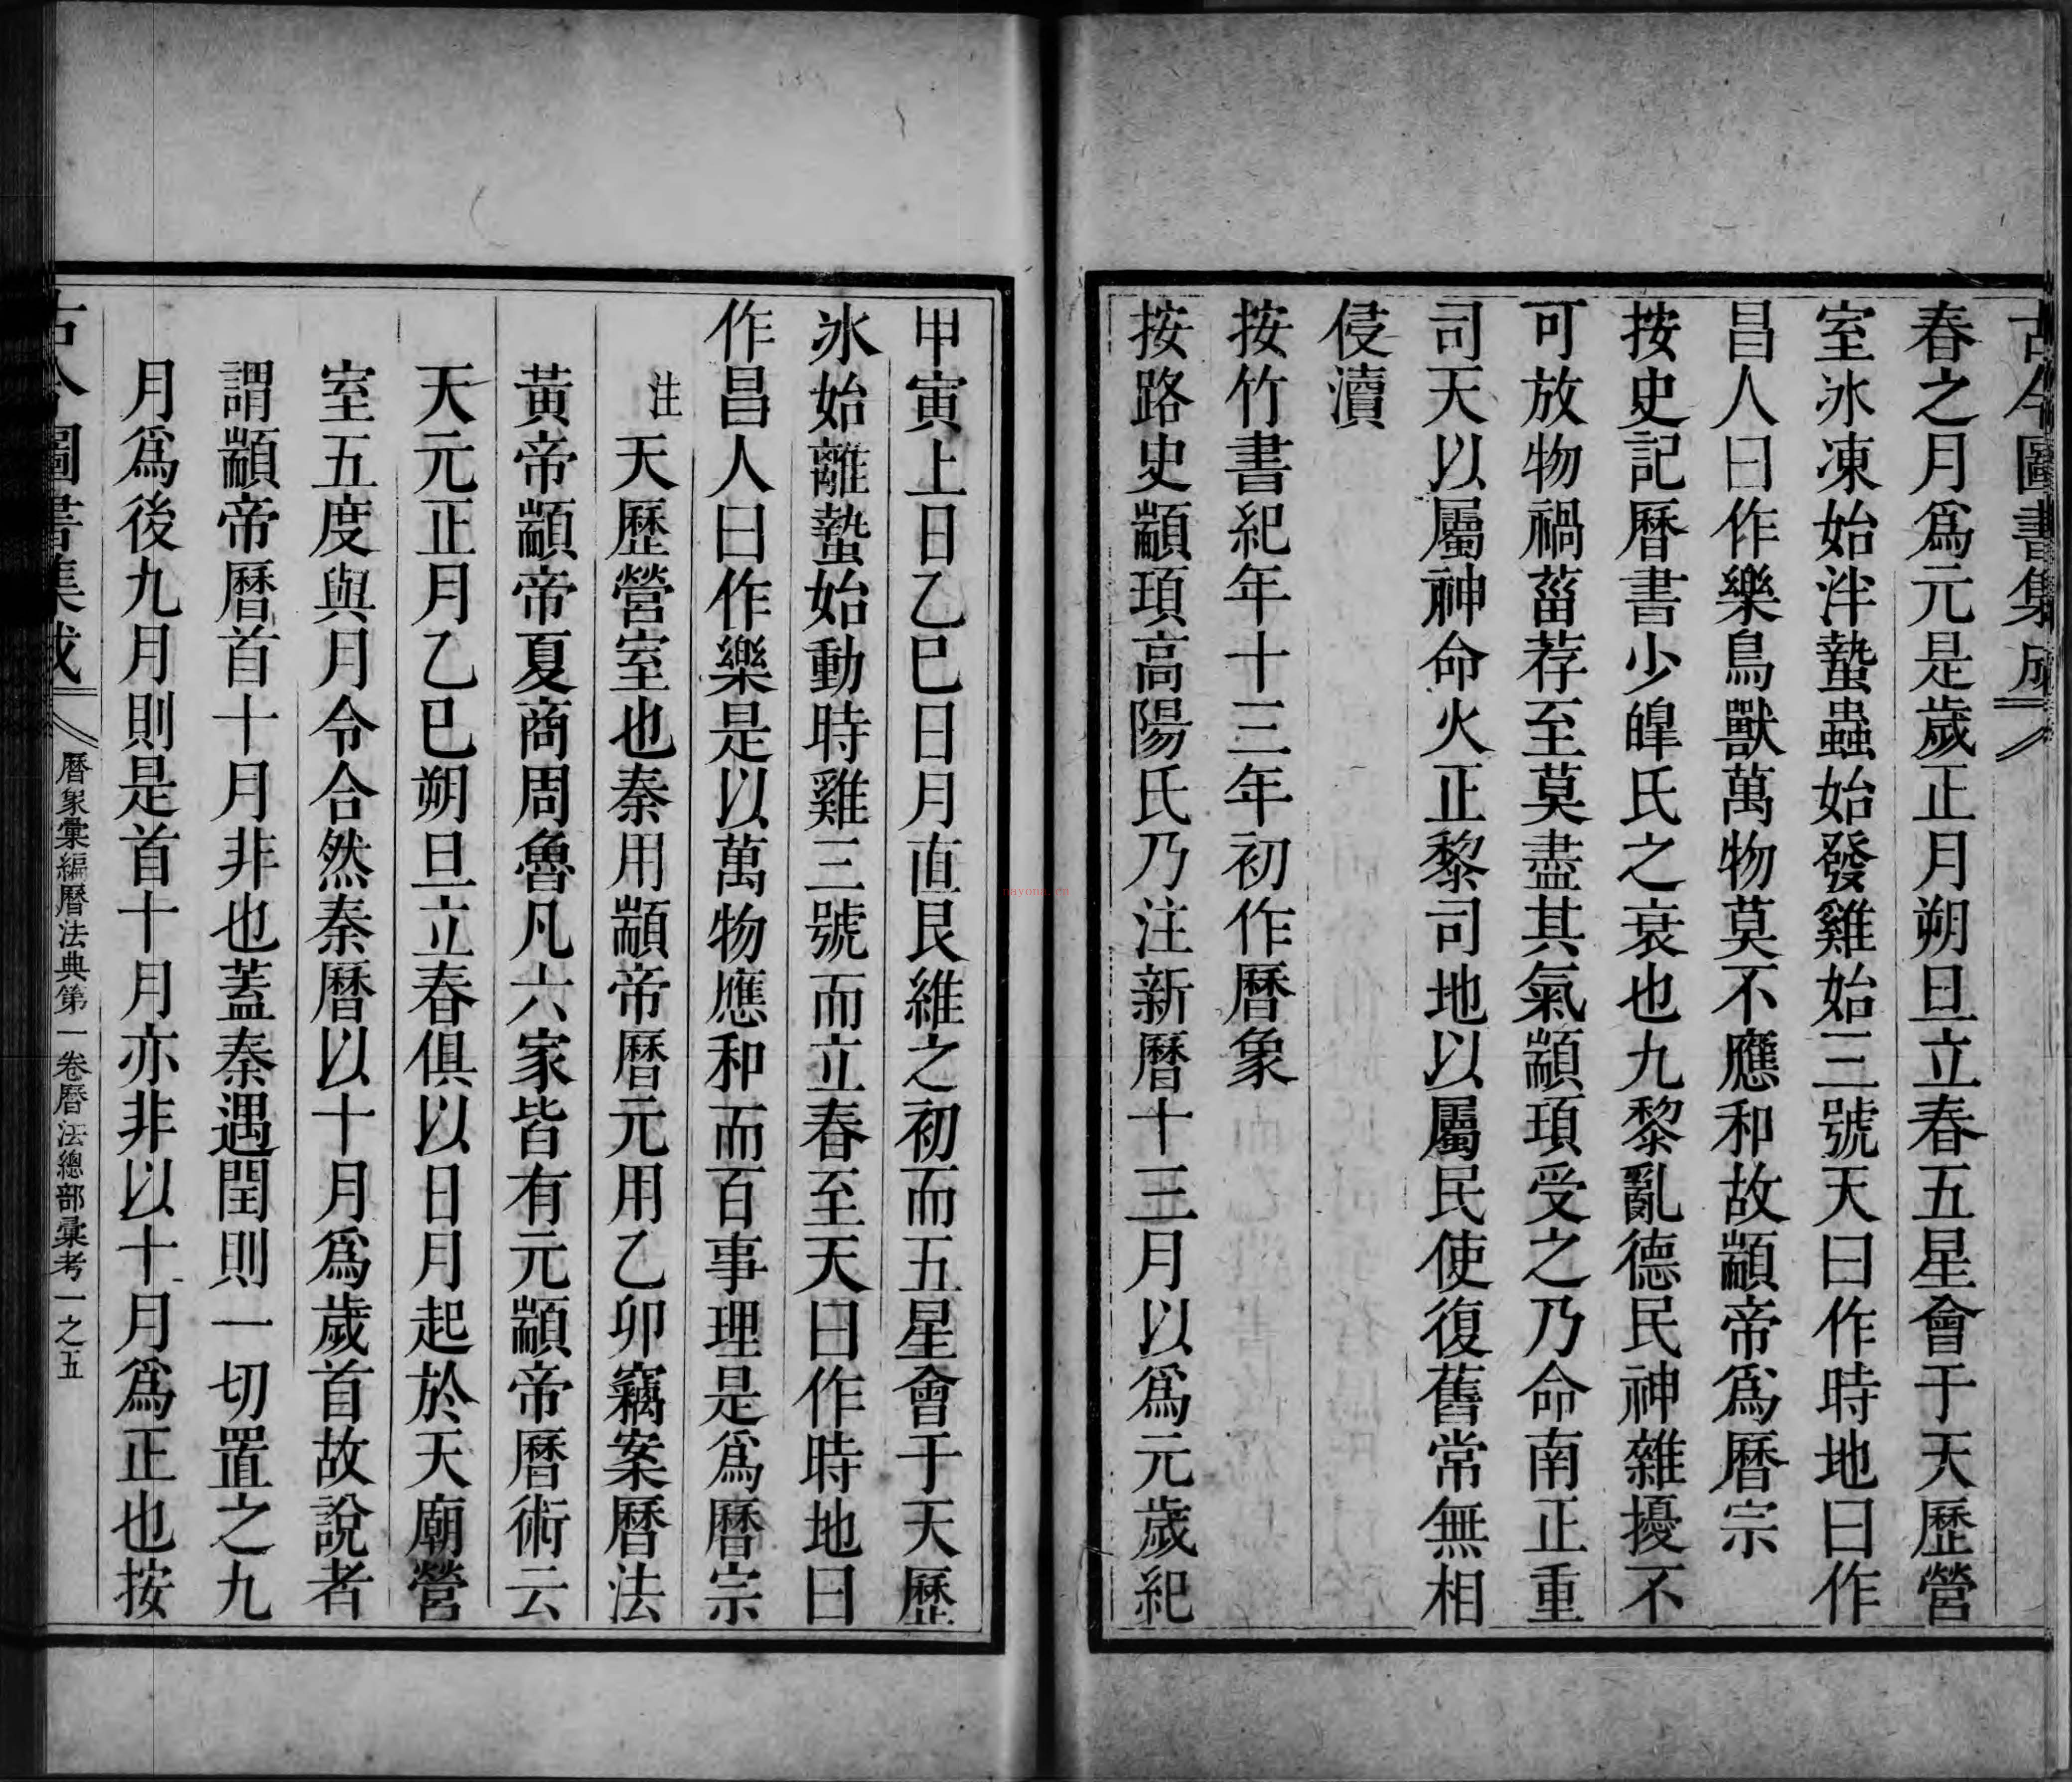 古今圖書集成
春之月爲元是歲正月朔旦立春五星會于天歷營
室冰凍始泮蟄蟲始發雞始三號天曰作時地曰作
昌人曰作樂鳥獸萬物莫不應和故顓帝爲曆宗
按史記曆書少皡氏之衰也九黎亂德民神雜擾不
可放物禍菑荐至莫盡其氣顓頊受之乃命南正重
司天以屬神命火正黎司地以屬民使復舊常無相
侵瀆
按竹書紀年十三年初作曆象
按路史顓頊高陽氏乃注新曆十三月以爲元歲紀
甲寅上日乙巳日月直艮維之初而五星會于天歷
冰始離蟄始動時雞三號而立春至天曰作時地曰
作昌人曰作樂是以萬物應和而百事理是爲曆宗
注天歷營室也秦用顓帝曆元用乙卯竊案曆法
黃帝顓帝夏商周魯凡六家皆有元顓帝曆術云
天元正月乙巳朔旦立春俱以日月起於天廟營
室五度與月令合然秦曆以十月爲歲首故說者
謂顓帝曆首十月非也蓋秦遇閏則一切置之九
月爲後九月則是首十月亦非以十月爲正也按
古今圖書集成
曆象彙編曆法典第一卷曆法總部彙考一之五
nayona.cn